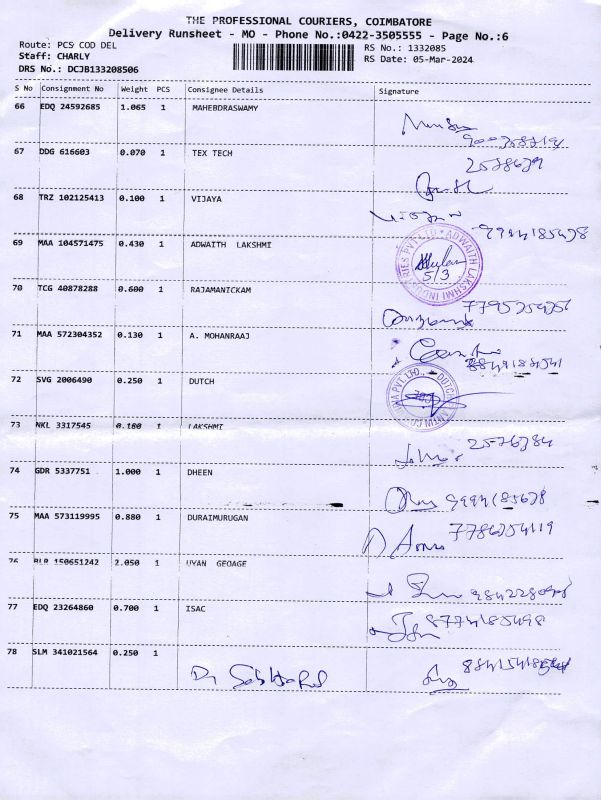 THE PROFESSIONAL COURIERS, COIMBATORE
Delivery Runsheet - MO - Phone No.:0422-3505555 - Page No.:6
Route: PCS COD DEL
Staff: CHARLY
DRS No.: DCJB133208506
RS No.: 1332085
RS Date: 05-Mar-2024
S No Consignment No Weight PCS Consignee Details Signature
66 EDQ 24592685 1.065 1 MAHEBDRASWAMY
67 DDG 616603 0.070 1 TEX TECH
2578679
68 TRZ 102125413 0.100 1 VIJAYA
69 MAA 104571475 0.430 1 ADWAITH LAKSHMI
ADWAITH LAKSHMI INDUSTRIES PVT LTD
5/3
70 TCG 40878288 0.600 1 RAJAMANICKAM
71 MAA 572304352 0.130 1 A. MOHANRAAJ
72 SVG 2006490 0.250 1 DUTCH
73 NKL 3317545 0.180 1 LAKSHMI
2576384
74 GDR 5337751 1.000 1 DHEEN
9994185678
75 MAA 573119995 0.880 1 DURAIMURUGAN
7786254119
76 BLR 150651242 2.050 1 UYAN GEOAGE
77 EDQ 23264860 0.700 1 ISAC
8774185498
78 SLM 341021564 0.250 1